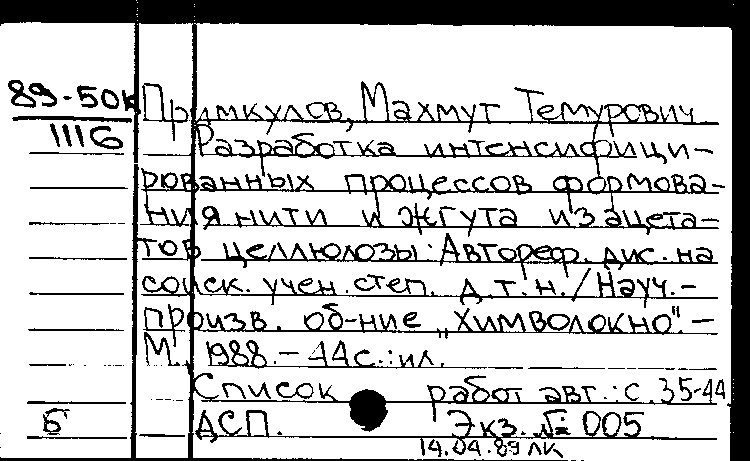 89-50к Примкулов, Махмут Темурович
1116 Разработка интенсифици-
рованных процессов формова-
ния нити и жгута из ацета-
тов целлюлозы: Автореф. дис. на
соиск. учен. степ. д.т.н./Науч.-
произв. об-ние „Химволокно". –
М., 1988. – 44с.: ил.
Список работ авт.: с. 35-44.
Б ДСП. Экз. № 005
14.04.89 ЛК